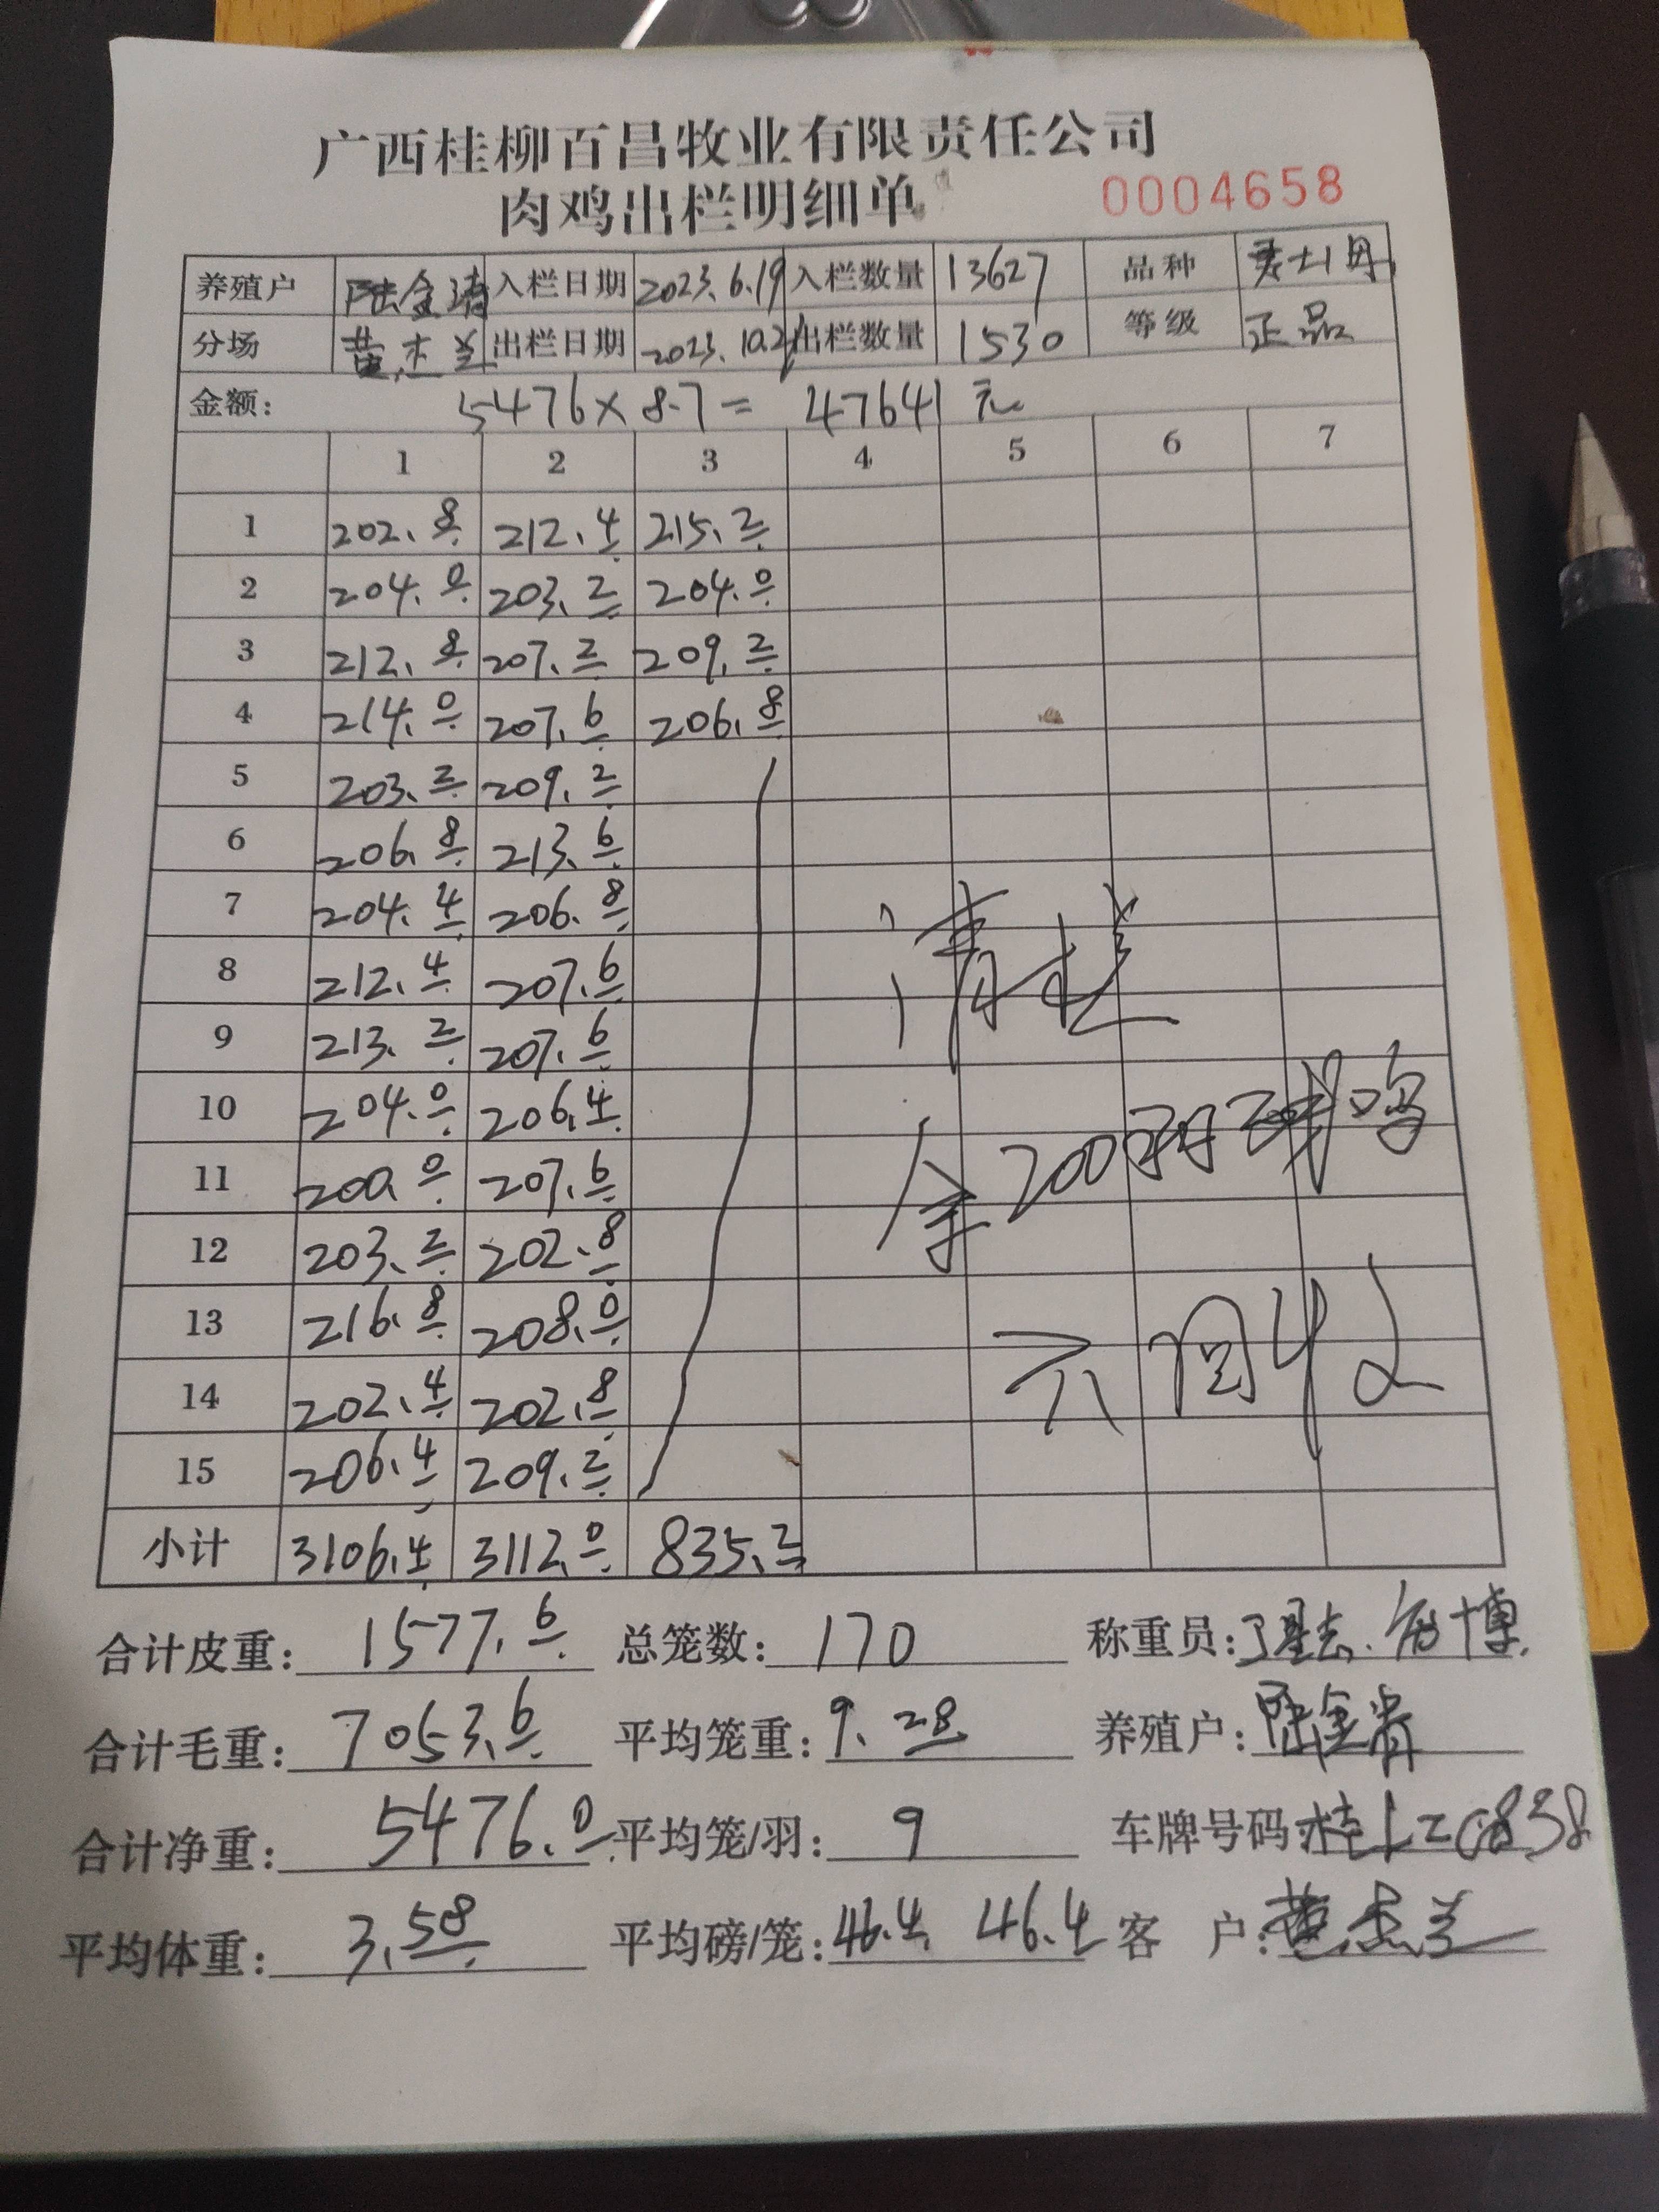 广西桂柳百昌牧业有限责任公司
肉鸡出栏明细单 0004658
养殖户 陆金清 入栏日期 2023.6.19 入栏数量 13627 品种
分场 黄杰兰 出栏日期 2023.10.21 出栏数量 1530 等级 正品
金额: 5476×8.7= 47641元
1 2 3 4 5 6 7
1 202.8 212.4 215.2
2 204.0 203.2 204.0
3 212.8 207.2 209.2
4 214.0 207.6 206.8
5 203.2 209.2
6 206.8 213.6
7 204.4 206.8
8 212.4 207.6 清栏
9 213.2 207.6
10 204.0 206.4
11 200.0 207.6 余200羽残鸡
12 203.2 202.8
13 216.8 208.0
14 202.4 202.8 不回收
15 206.4 209.2
小计 3106.4 3112.0 835.2
合计皮重: 1577.6 总笼数: 170 称重员:
合计毛重: 7053.6 平均笼重: 9.28 养殖户:
合计净重: 5476.0 平均笼/羽: 9 车牌号码
平均体重: 3.58 平均磅/笼: 46.4 46.4 客 户: 黄杰兰